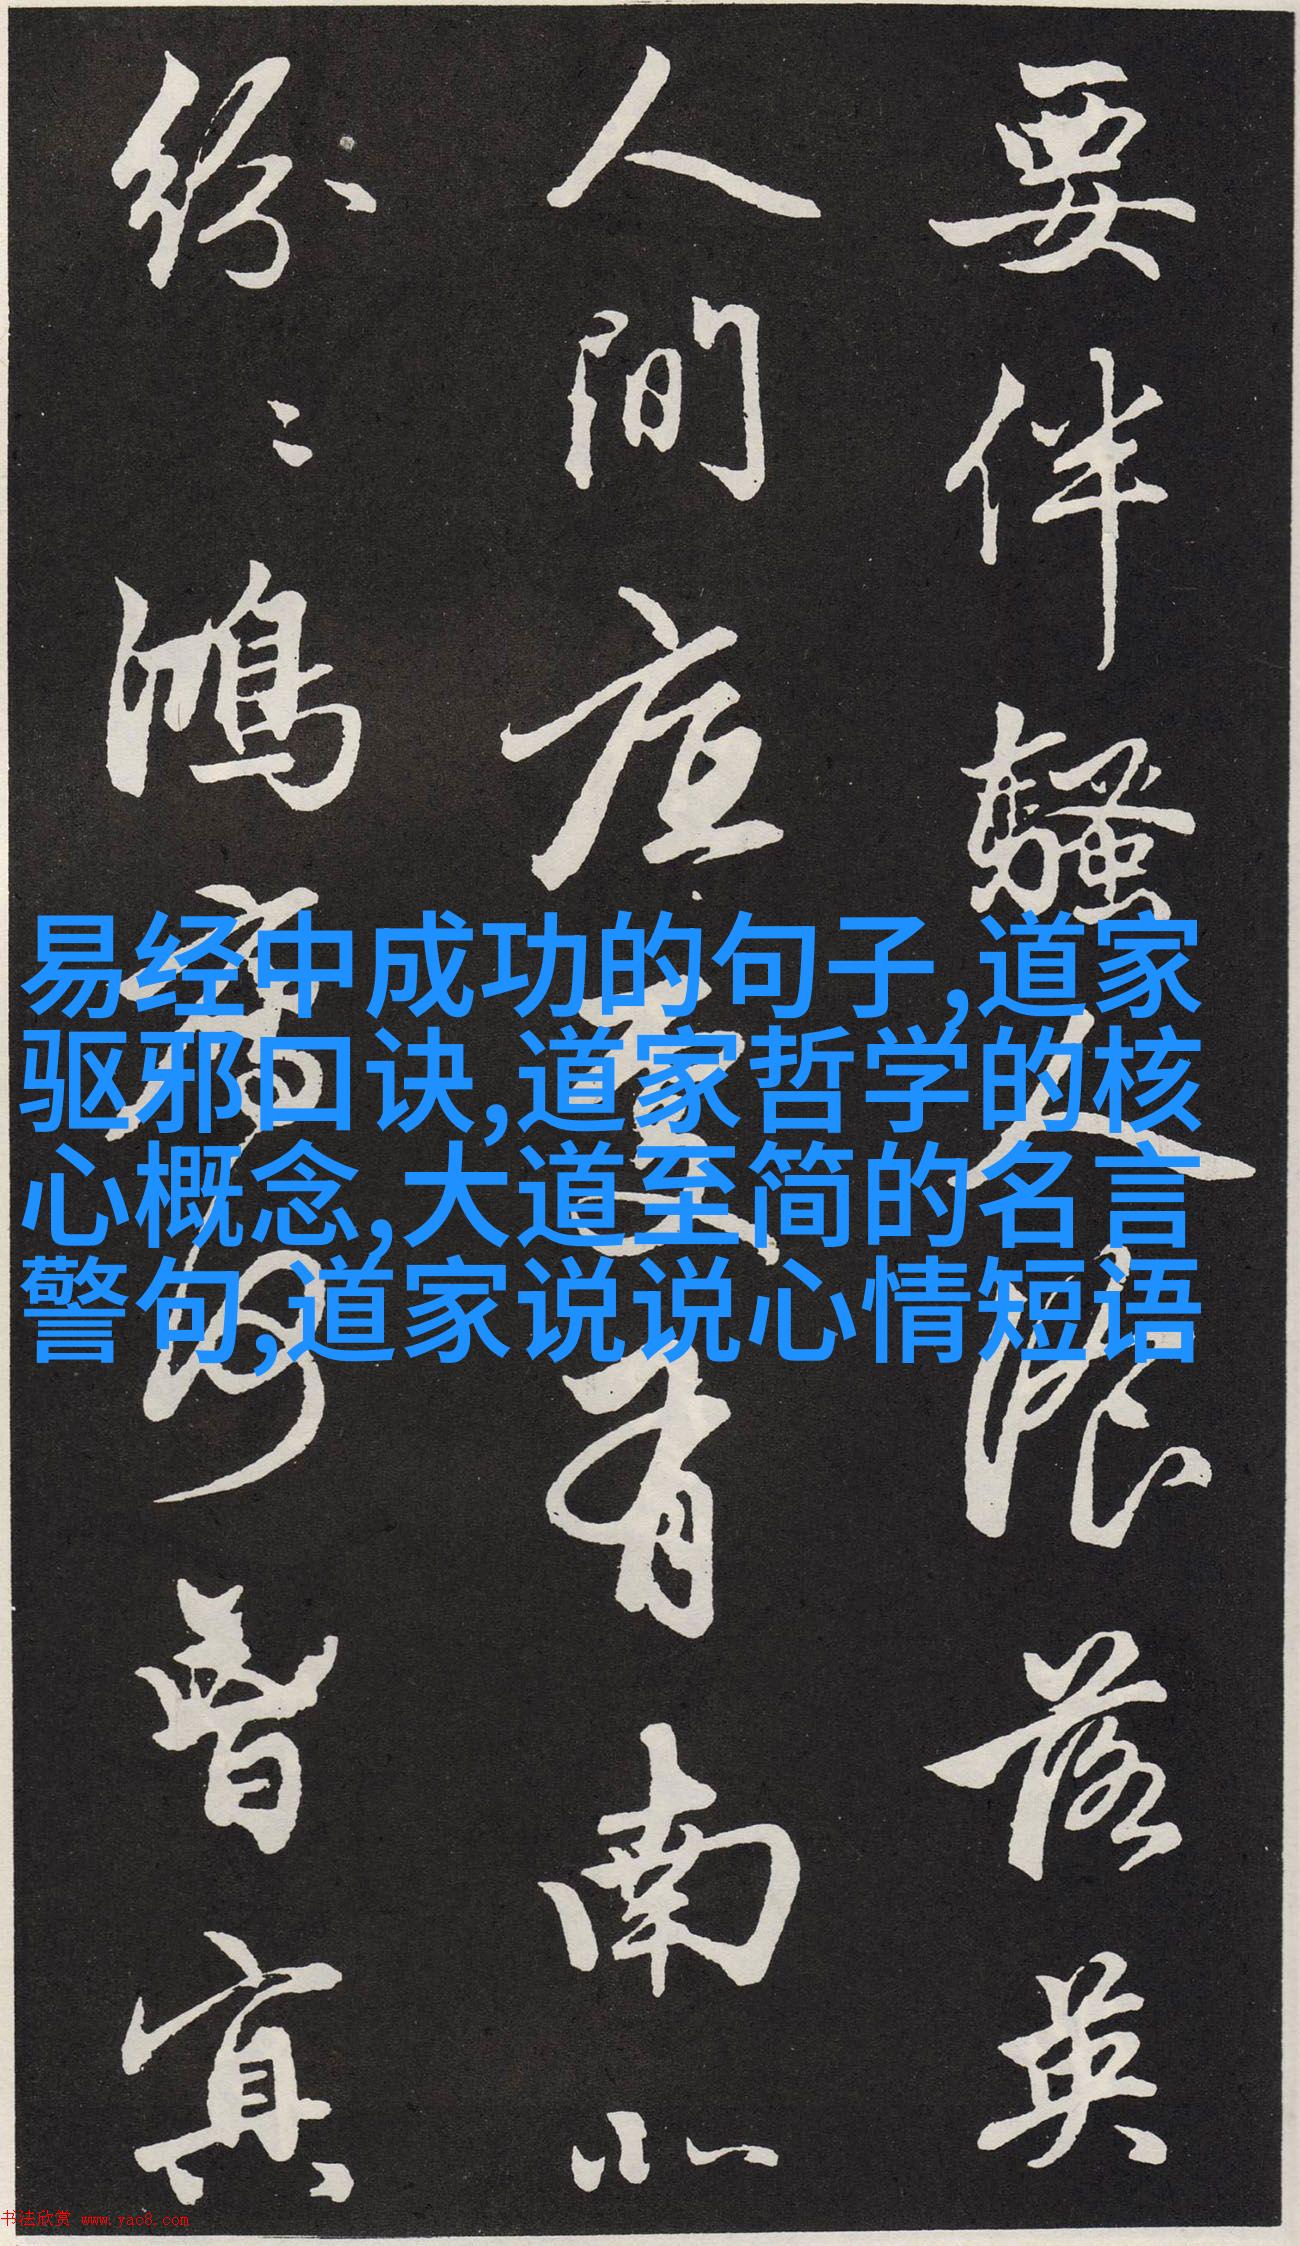 要伴騷人湌落英
人間底處有南北
紛〻鴻鴈何曾冥
易经中成功的句子,道家
驱邪口诀,道家哲学的核
心概念,大道至简的名言
警句,道家说说心情短语
书法欣赏 www.yac8.com